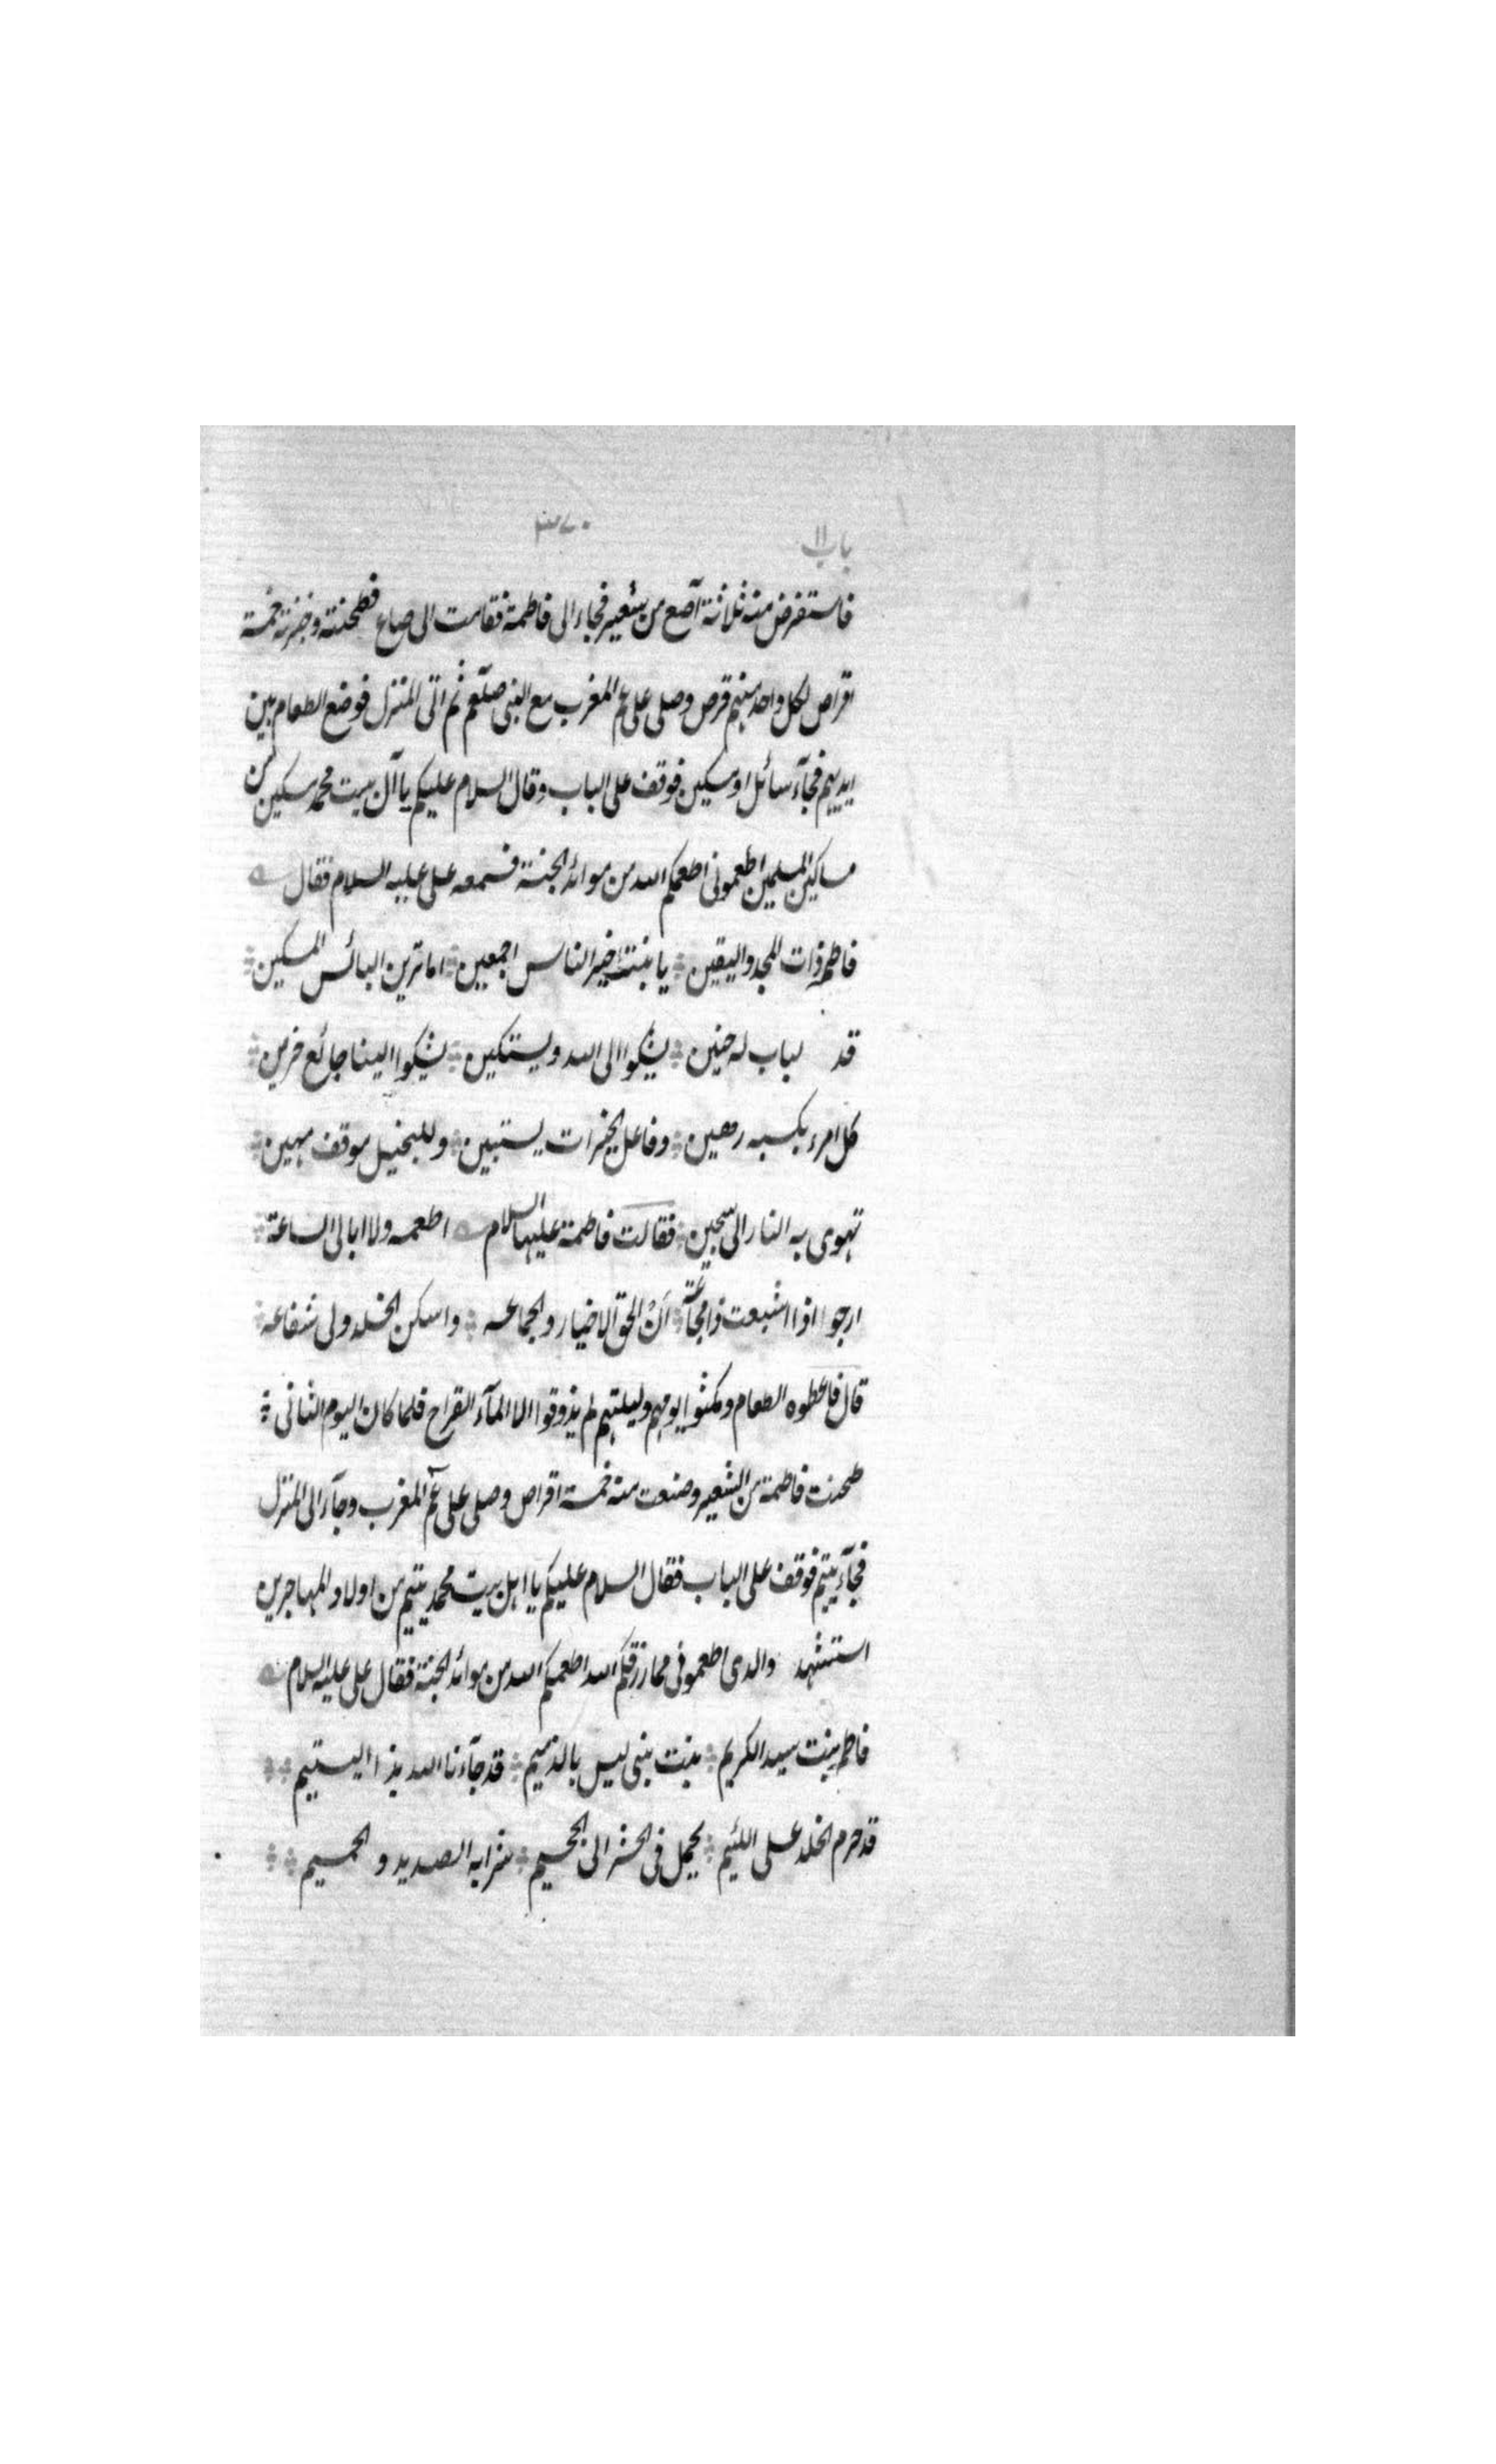 باب ١١
فاستقرض منه ثلاثة آصع من شعير فجاء الى فاطمة فقامت الى صاع فطحنته وخبزته خمسة
اقراص لكل واحد منهم قرص وصلى على ع م المغرب مع النبى صلعم ثم اتى المنزل فوضع الطعام بين
ايديهم فجآء سائل او مسكين فوقف على الباب وقال السلام عليكم يا آل بيت محمد مسكين من
مساكين المسلمين اطعمونى اطعمكم الله من موائد الجنة فسمعه على عليه السلام فقال
فاطم ذات المجد واليقين ؞ يا بنت خير الناس اجمعين ؞ اما ترين البائس المسكين ؞
قد لباب له حنين ؞ يشكوا الى الله ويستكين ؞ يشكوا الينا جائع حزين ؞
كل امرء بكسبه رهين ؞ وفاعل الخيرات يستبين ؞ وللبخيل موقف مهين ؞
تهوى به النار الى سجين ؞ فقالت فاطمة عليها السلام اطعمه ولا ابالى الساعة ؞
ارجوا اذا اشبعت ذا مجاعة ؞ اَنْ الحق الاخيار والجماعه ؞ واسكن الخلد ولى شفاعه ؞
قال فاعطوه الطعام ومكثوا يومهم وليلتهم لم يذوقوا الا المآء القراح فلما كان اليوم الثانى ؞
طحنت فاطمة من الشعير وصنعت منه خمسة اقراص وصلى على ع م المغرب وجآء الى المنزل
فجآء يتيم فوقف على الباب فقال السلام عليكم يا اهل بيت محمد يتيم من اولاد المهاجرين
استشهد والدى اطعمونى مما رزقكم الله اطعمكم الله من موائد الجنة فقال على عليه السلام
فاطم بنت سيد الكريم ؞ بنت نبى ليس بالذميم ؞ قد جآءنا الله بذا اليتيم ؞؞
قد حرم الخلد على اللئيم ؞ يحمل فى الحشر الى الجحيم ؞ شرابه الصديد والحميم ؞؞